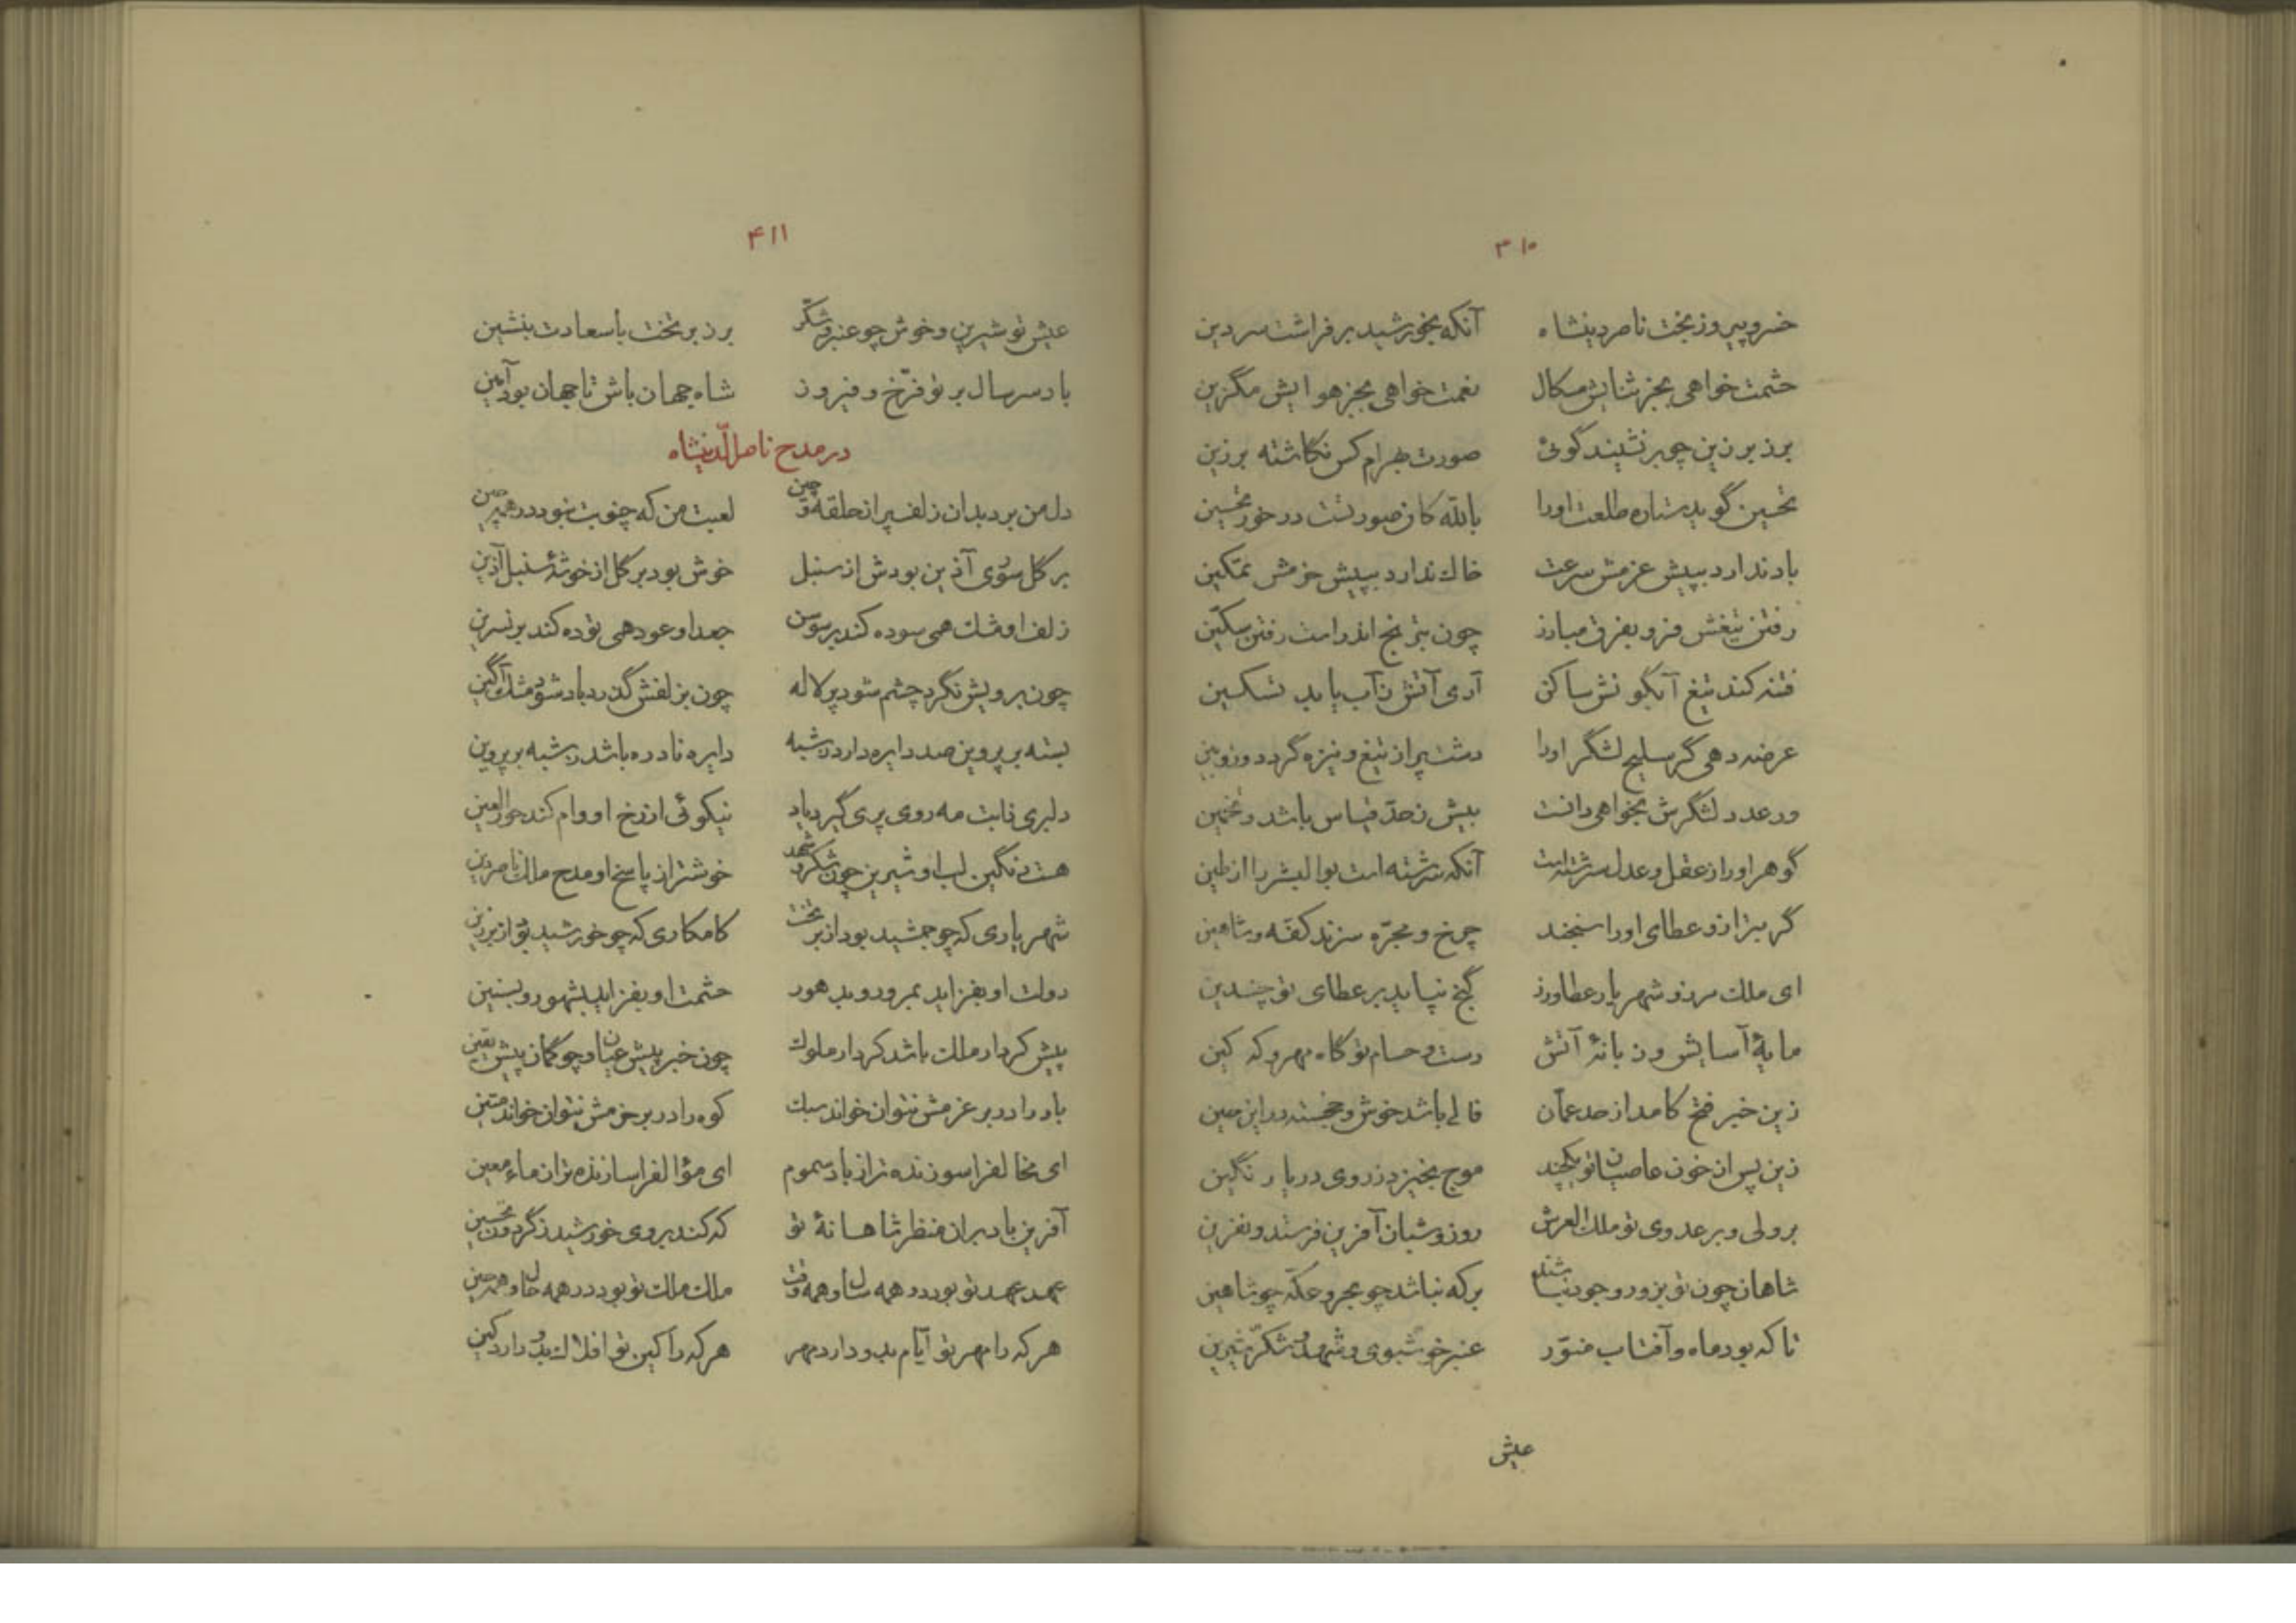 ۳۱۰
خسرو پیروز بخت ناصر دینشاه آنکه بخورشید بر فراشت سر دین
حشمت خواهی بجز ثنایش مسکال نعمت خواهی بجز هوایش مگزین
بر زبر زین چو بر نشیند گوئی صورت بهرام کس نکاشته بر زین
تحسین گوید ستاره طلعت اورا بالله کان صورتست در خور تحسین
باد ندارد بپیش عزمش سرعت خاک ندارد بپیش حزمش تمکین
رفتن تیغش فزو بفرق مبارز چون بترنج اندر است رفتن سکّین
فتنه کند تیغ آبگونش ساکن آری آتش ز آب یابد تسکین
عرضه دهی گر سلیح لشگر اورا دشت پر از تیغ و نیزه گردد و زوبین
ور عدد لشگرش بخواهی دانست بیش ز حدّ قیاس باشد و تخمین
گوهر اورا ز عقل و عدل سرشته است آنکه سرشته است بوالبشر را از طین
گر بترازو عطای اورا سنجند چرخ و مجرّه سزند کفّه و شاهین
ای ملک سرزو شهریار عطاورز گنج نپاید بر عطای تو چندین
مایهٔ آسایش و زبانهٔ آتش دست و حسام تو گاه مهر و که کین
زین خبر فتح کامد از حد عمّان فالی باشد خوش و خجسته در این حین
زین پس از خون عاصیان تو یکچند موج بخیزد ز روی دریا رنگین
بر ولی و بر عدوی تو ملک العرش روز و شبان آفرین فرستد و نفرین
شاهان چون تو بزور وجود نباشند برکه نباشد چو بحر و عکّه چو شاهین
تا که بود ماه و آفتاب منوّر عنبر خوشبوی و شهد و شکّر شیرین
عیش
۴۱۱
عیش تو شیرین و خوش چو عنبر و شکّر بر زبر تخت با سعادت بنشین
باد سر سال بر تو فرّخ و فیروز شاه جهان باش تا جهان بود آمین
در مدح ناصر الدّینشاه
دل من برد بدان زلف پر از حلقه و چین لعبت من که چنو بت نبود در همه چین
بر گل سوری آذین بودش از سنبل خوش بود بر گل از خوشهٔ سنبل آذین
زلف او مشک همی سوده کند بر سوسن جعد او عود همی توده کند بر نسرین
چون برویش نگرد چشم شود پر لاله چون بزلفش گذرد باد شود مشک آگین
بسته بر پروین صد دایره دارد ز شبه دایره نادره باشد ز شبه بر پروین
دلبری زانبت مه روی پری گیرد یاد نیکوئی از رخ او وام کند حور العین
هست رنگین لب او شیرین چون شکّر و شهد خوشتر از پاسخ او مدح ملک ناصر دین
شهریاری که چو جمشید بود از بر تخت کامکاری که چو خورشید بود از بر زین
دولت او بفزاید بمرور و بدهور حشمت او بفزاید بشهور و بسنین
پیش کردار ملک باشد کردار ملوک چون خبر پیش عیان و چو گمان پیش یقین
باد را در بر عزمش نتوان خواند سبک کوه را در بر حزمش نتوان خواند متین
ای مخالف را سوزنده تر از باد سموم ای مؤالف را سازنده تر از ماء معین
آفرین باد بر ان منظر شاهانهٔ تو که کند بر وی خورشید ز گردون تحسین
عهد عهد تو بود در همه سال و همه وقت ملک ملک تو بود در همه حال و همه حین
هر که را مهر تو ایّام بدو دارد مهر هر که را کین تو افلاک بدو دارد کین